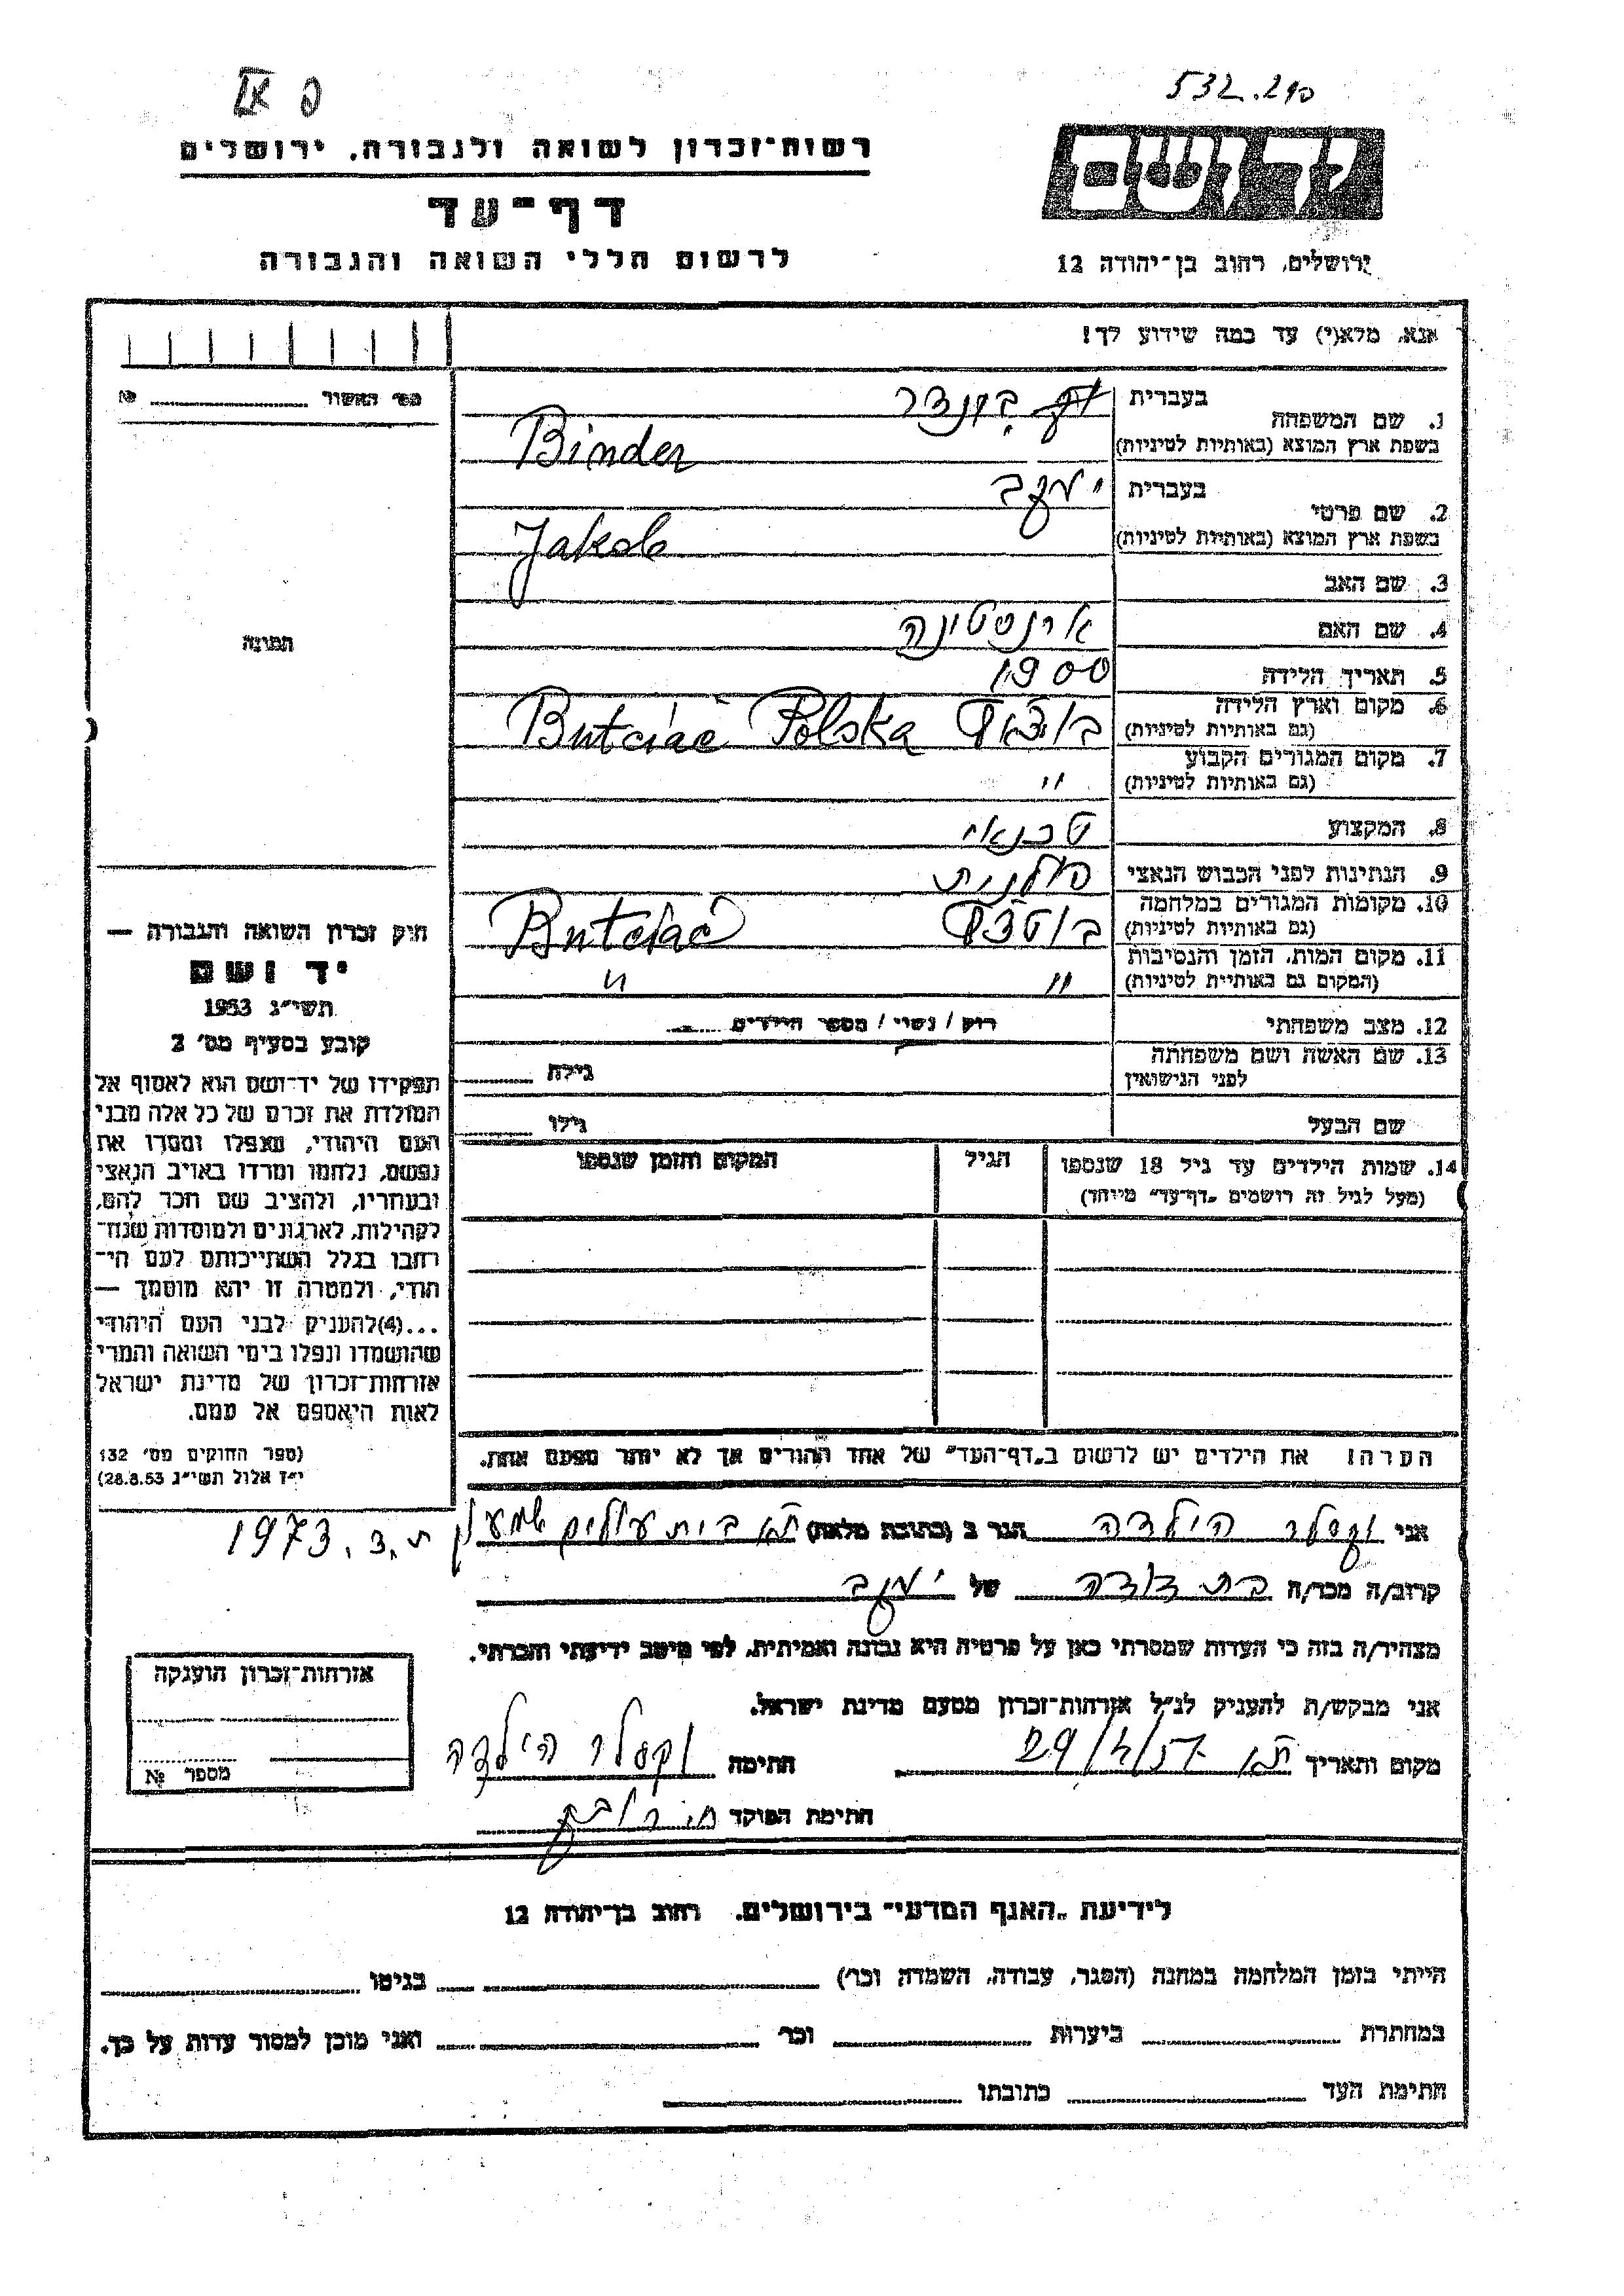 532.290
פ XI
רשות־זכרון לשואה ולגבורה, ירושלים
יד ושם
דף־עד
לרשום חללי השואה והגבורה
ירושלים, רחוב בן־יהודה 12
אנא, מלא(י) עד כמה שידוע לך!
מס׳ האשור № 
1. שם המשפחה בעברית בינדר
בשפת ארץ המוצא (באותיות לטיניות) Binder
2. שם פרטי בעברית יעקב
בשפת ארץ המוצא (באותיות לטיניות) Jakob
3. שם האב
4. שם האם ארנסטינה
5. תאריך הלידה 1900
6. מקום וארץ הלידה
(גם באותיות לטיניות) Butciač Polska
7. מקום המגורים הקבוע
(גם באותיות לטיניות) "
8. המקצוע טכנאי
9. הנתינות לפני הכבוש הנאצי פולנית
10. מקומות המגורים במלחמה
(גם באותיות לטיניות) Butciač
11. מקום המות, הזמן והנסיבות
(המקום גם באותיות לטיניות) " "
12. מצב משפחתי רוק / נשוי / מספר הילדים
13. שם האשה ושם משפחתה
לפני הנישואין גילה
שם הבעל גילו
14. שמות הילדים עד גיל 18 שנספו הגיל המקום והזמן שנספו
(מעל לגיל זה רושמים "דף־עד" מיוחד)
הערה! את הילדים יש לרשום ב"דף־העד" של אחד ההורים אך לא יותר מפעם אחת.
תמונה
חוק זכרון השואה והגבורה —
יד ושם
תשי״ג 1953
קובע בסעיף מס׳ 2
תפקידו של יד־ושם הוא לאסוף אל
המולדת את זכרם של כל אלה מבני
העם היהודי, שנפלו ומסרו את
נפשם, נלחמו ומרדו באויב הנאצי
ובעוזריו, ולהציב שם וזכר להם,
לקהילות, לארגונים ולמוסדות שנח־
רבו בגלל השתייכותם לעם הי־
הודי, ולמטרה זו יהא מוסמך —
...(4) להעניק לבני העם היהודי
שהושמדו ונפלו בימי השואה והמרי
אזרחות־זכרון של מדינת ישראל
לאות היאספם אל עמם.
(ספר החוקים מס׳ 132
י״ז אלול תשי״ג 28.8.53)
אני וקסלר הילדה הגר ב (כתובת מלאה) ת״א בית עולים שמעון ת.צ. 1973
קרוב/ה מכר/ה בת דודה של יעקב
מצהיר/ה בזה כי העדות שמסרתי כאן על פרטיה היא נכונה ואמיתית, לפי מיטב ידיעתי והכרתי.
אני מבקש/ת להעניק לנ״ל אזרחות־זכרון מטעם מדינת ישראל.
מקום ותאריך ת״א 29/4/57 חתימה וקסלר הילדה
חתימת הפוקד
אזרחות־זכרון הוענקה
מספר №
לידיעת "האגף המדעי" בירושלים, רחוב בן־יהודה 12
הייתי בזמן המלחמה במחנה (הסגר, עבודה, השמדה וכר׳) בגיטו
במחתרת ביערות וכר׳ ואני מוכן למסור עדות על כך.
חתימת העד כתובתו